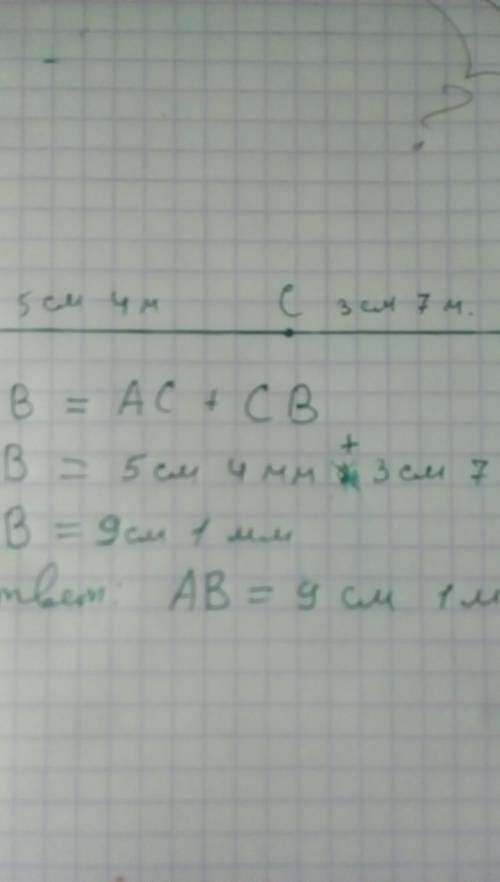 ?
5 см 4 м C 3 см 7 м.
B = AC + CB
B = 5 см 4 мм + 3 см 7
B = 9 см 1 мм
твет: AB = 9 см 1 м